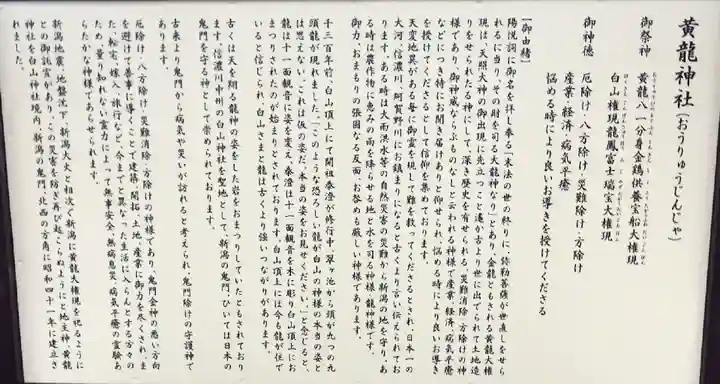 黄龍神社(おうりゅうじんじゃ)
御祭神　黄龍八一分身金鶏供養宝船大権現
白山権現龍鳳富士瑞宝大権現
御神徳　厄除け・八方除け・災難除け・方除け
産業・経済・病気平癒
悩める時により良いお導きを授けてくださる
【御由緒】
陽悦詞に御名を拝し奉る「末法の世の終りに、弥勒菩薩が世直しをせら
れるに当り、その財を司る大龍神なり」とあり、金龍ともされる黄龍大権
現は、天照大神の御出現に先立つこと遙か古より世に出でられて土地造
りをせられたる神にして、深き歴史を有せられる、災難除け・方除けの神
様であり、御神威ならぶものなしと云われる神様で産業、経済、病気平癒
などにつき特にお聞き届けありと仰せられ、悩める時により良いお導き
を授けてくださるとして信仰を集めております。
天変地異がある毎に御霊を現して難を救ってくださるとされ、日本一の
大河、信濃川・阿賀野川にお鎮まりになると古くより言い伝えられてお
ります。ある時は大雨洪水等の自然災害の災難から新潟の地を守り、あ
る時は農作物に恵みの雨を降らせる地と水を司る神様・龍神様です。
御力、おまもりの強固なる反面、お咎めも厳しい神様であります。
千三百年前、白山頂上にて開祖泰澄が修行中、翠ヶ池から頭が九つの九
頭龍が現れました。「このような恐ろしい龍が白山の神様の本当の姿と
は思えない。これは仮の姿だ、本当の姿をお見せください。」と念じると、
龍は十一面観音に姿を変え、泰澄は十一面観音を木に彫り白山頂上にお
まつりされたのが始まりとされております。白山頂上には今も龍が住で
いると信じられ、白山さまと龍は古くより強いつながりがあります。
古くは天を翔る龍神の姿をした岩をおまつりしていたともされており
ます。信濃川中州の白山神社を聖地として、新潟の鬼門、ひいては日本の
鬼門を守る神として崇められております。
古来より鬼門から病気や災いが訪れると考えられ、鬼門除けの守護神で
あります。
厄除け・八方除け・災難消除・方除けの神様であり、鬼門金神の悪い方向
を避けて善事に導くことで建築、開拓、土地、産業に御力を尽くされ、ま
た、転宅、嫁入、旅行など、今までと異なった生活に入らんとする方々の
ため、量り知れない霊力によって無事安全、無病息災、病気平癒の霊験あ
らたかな神様であらせられます。
新潟地震、地盤沈下、新潟大火と相次ぐ新潟に黄龍大権現を祀るように
との御託宣があり、この災害を防ぎ再び起こらぬようにと地主神、黄龍
神社を白山神社境内、新潟の鬼門、北西の方角に昭和四十一年に建立さ
れました。